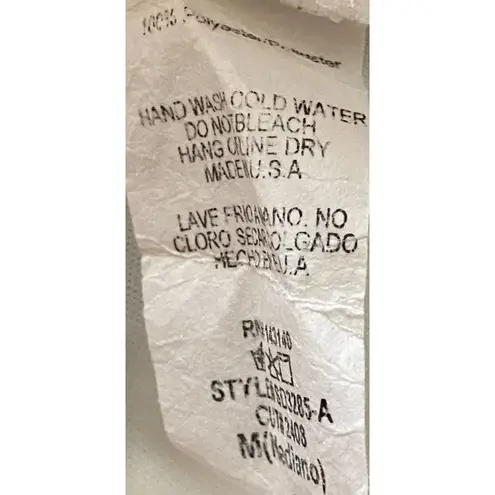 100% Polyester/Polyester
HAND WASH COLD WATER
DO NOT BLEACH
HANG O LINE DRY
MADE IN U.S.A
LAVE FRIO A MANO. NO
CLORO SECAR COLGADO
HECHO EN E.U.A.
RN 143140
STYLE# 3285-A
CUT# 2408
M(Mediano)